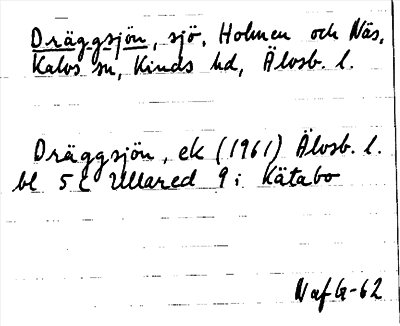 Dräggsjön, sjö, Holmen och Näs,
Kalvs sn, Kinds hd, Älvsb. l.
Dräggsjön, ek (1961) Älvsb. l.
bl 5C Ullared 9 i Kätabo
NafG-62